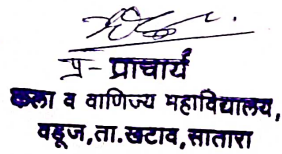 प्र - प्राचार्य
कला व वाणिज्य महाविद्यालय,
वडूज,ता.खटाव,सातारा